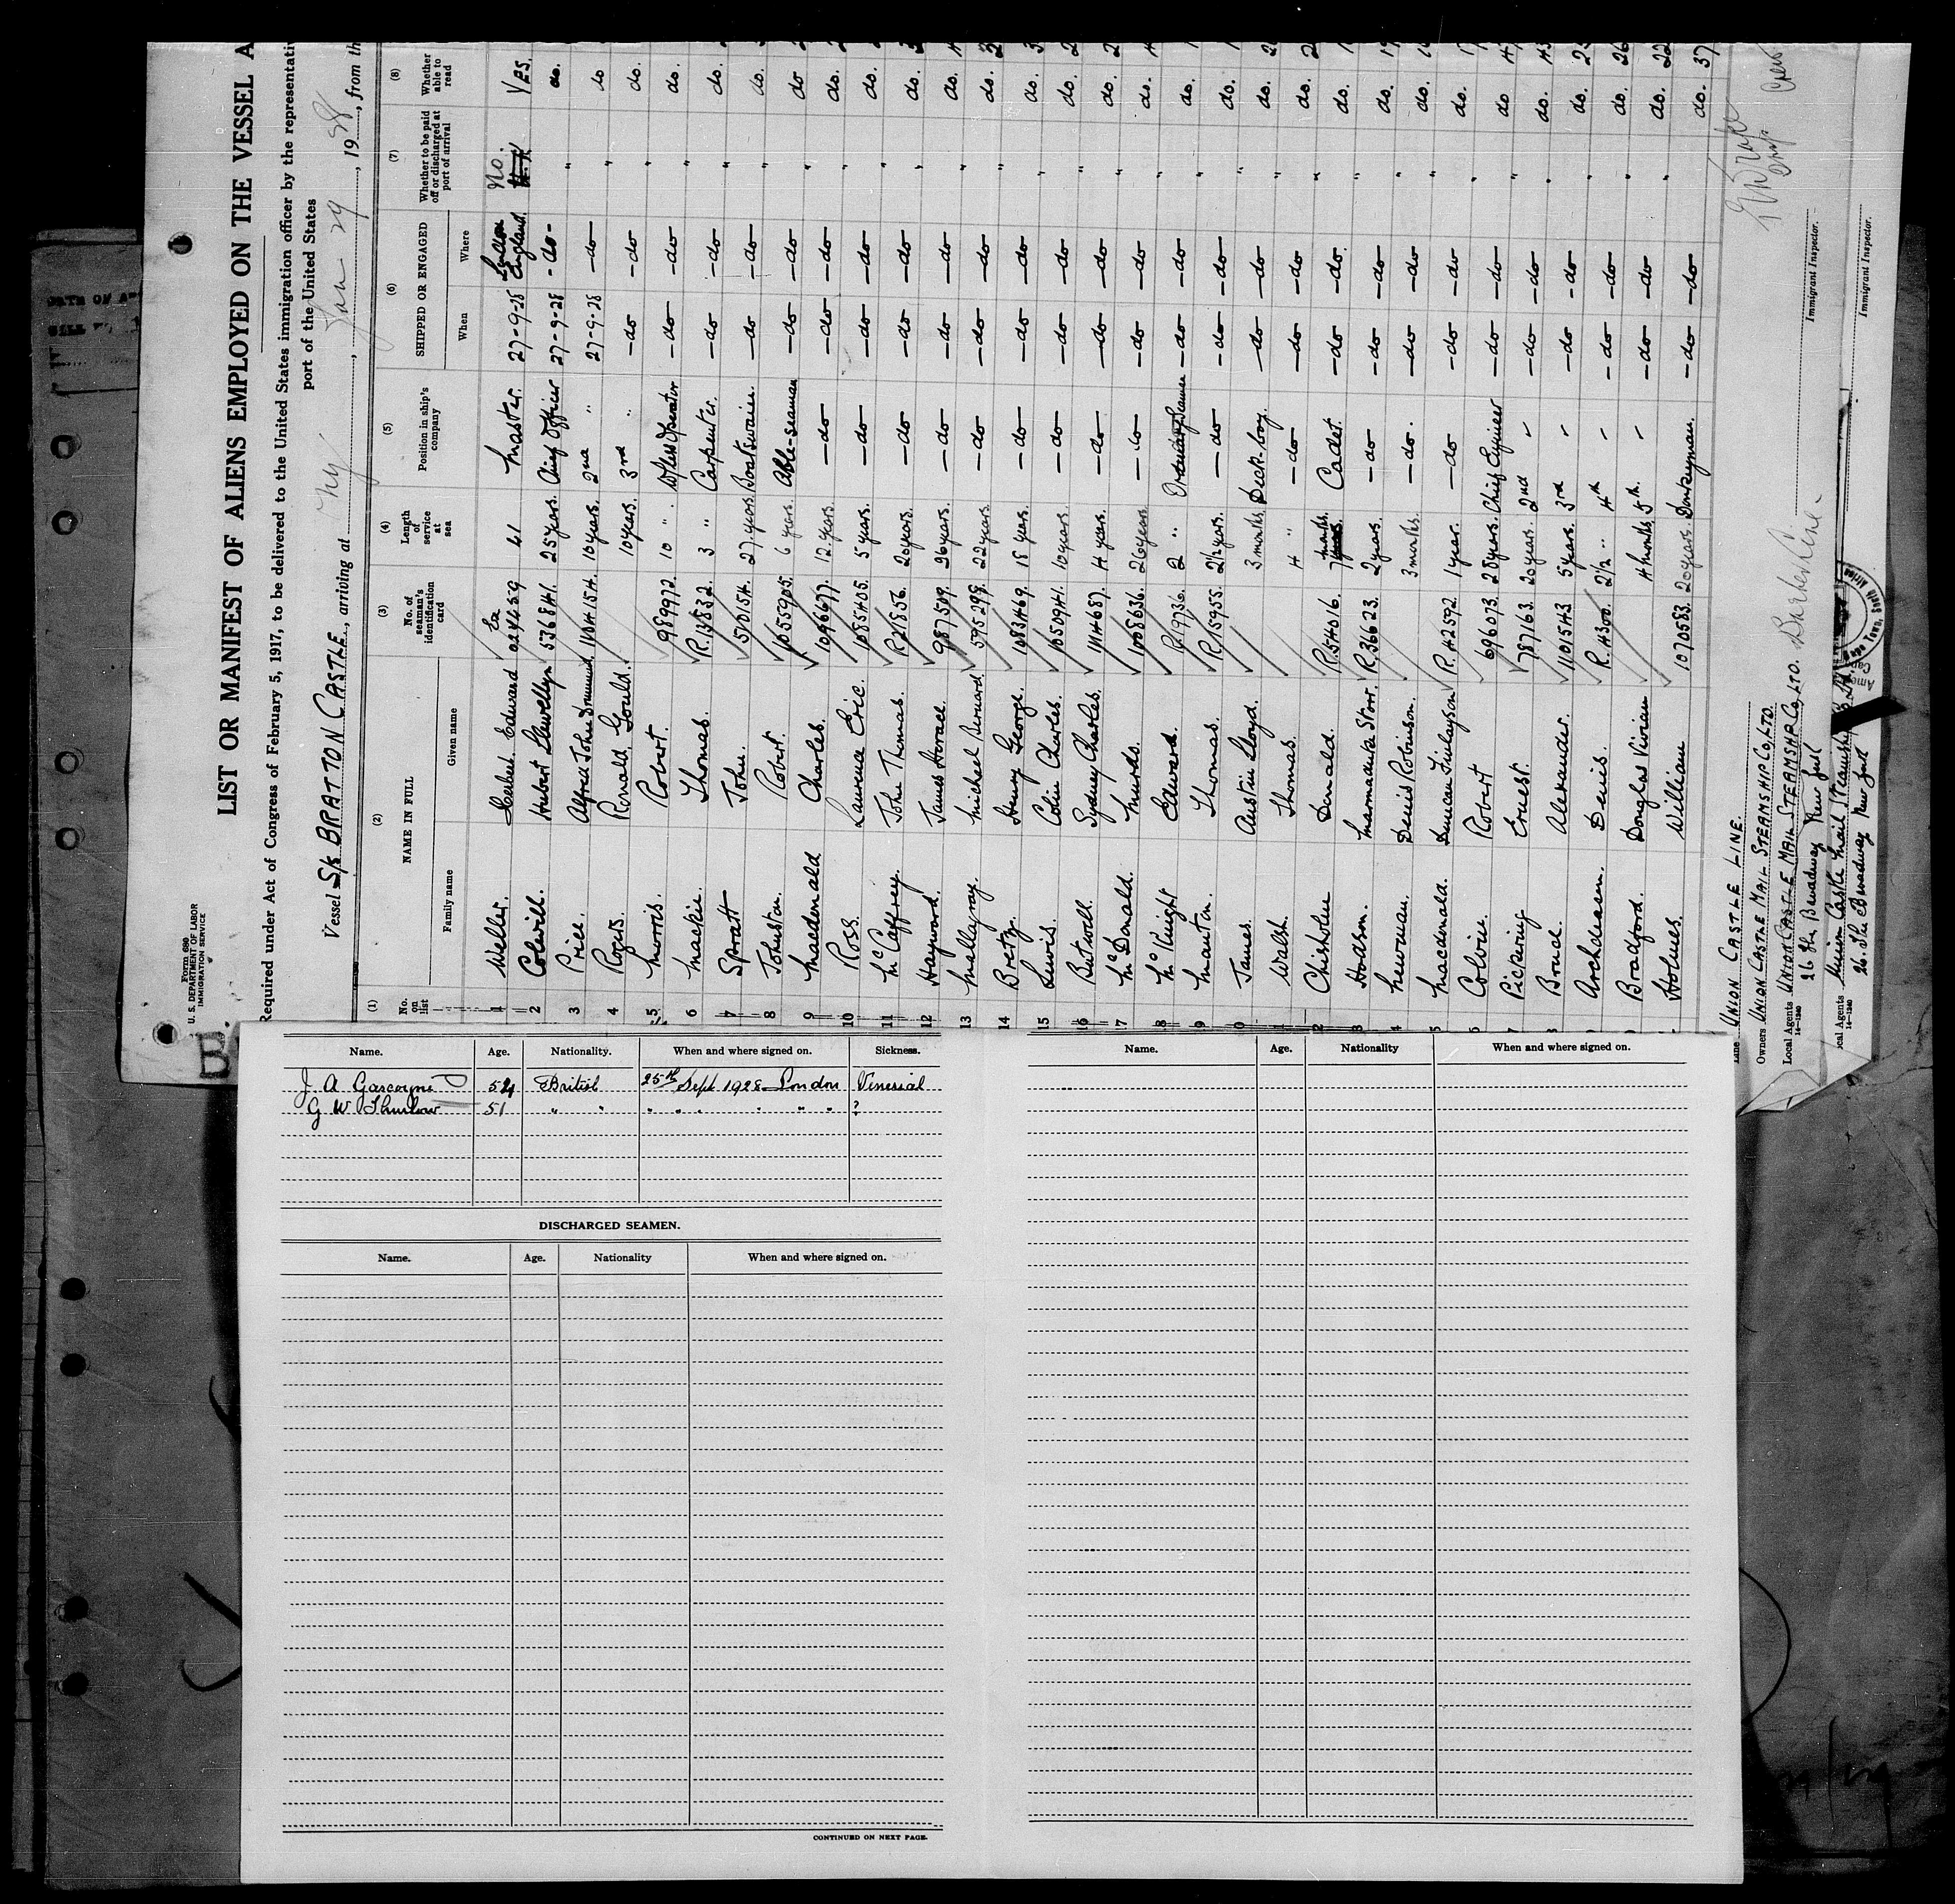 Form 680
U. S. DEPARTMENT OF LABOR
IMMIGRATION SERVICE
LIST OR MANIFEST OF ALIENS EMPLOYED ON THE VESSEL A
Required under Act of Congress of February 5, 1917, to be delivered to the United States immigration officer by the representativ
port of the United States
Vessel S/s BRATTON CASTLE, arriving at NY, Jan 29, 19, from th
(1) (2) (3) (4) (5) (6) (7) (8)
No. on list NAME IN FULL Family name Given name No. of seaman's identification card Length of service at sea Position in ship's company SHIPPED OR ENGAGED When Where Whether to be paid off or discharged at port of arrival Whether able to read
1 Weller. Herbert Edward 41 Master. 27-9-28 London England. No. Yes.
2 Colwill. Hubert Llewellyn 536841. 25 years. Chief Officer 27-9-28 -do- " do.
3 Price. Alfred John 1104154. 10 years. 2nd " 27-9-28 -do " do
4 Rogers. Ronald Gould. 10 years. 3rd " -do -do " do.
5 Morris. Robert. 989972. 10 ". -do -do " do.
6 Mackie. Thomas. R.13832. 3 " Carpenter. -do -do " do.
7 Spratt John. 510154. 27 years. Boatswain. -do -do " do.
8 Johnston. Robert. 1055905. 6 years. Able-seaman -do -do " do
9 Macdonald Charles. 1096677. 12 years. -do -do -do " do.
10 Ross. Laurence Eric. 1085405. 5 years. -do -do -do " do.
11 McCaffrey. John Thomas. R21856. 20 years. -do -do -do " do.
12 Hayward. James Horace. 987509. 36 years. -do -do -do " do.
13 Mallaghray. Michael Bernard 595299. 22 years. -do -do -do " do.
14 Bretz. Henry George. 1083469. 15 years. -do -do -do " do.
15 Lewis. Colin Charles. 1050941. 10 years. -do -do -do " do.
16 Butwell. Sydney Charles. 1114687. 4 years. -do -do -do " do.
17 McDonald. Murdo. 1008636. 26 years. -do -do -do " do.
18 McKnight Edward. R.19736. 2 " Ordinary Seaman -do -do " do.
9 Manton. Thomas. R.15955. 2½ years. -do -do -do " do.
0 James. Austin Lloyd. 3 months. Deck-boy. -do -do " do.
1 Walsh. Thomas. 4 " -do -do -do " do.
2 Chisholm Donald. R.54016. Cadet. -do -do. " do.
3 Hodson. Marmaduke Storr. R.36623. 2 years. -do -do -do " do.
4 Newman. Denis Robinson. 3 months. -do. -do -do " do.
5 Macdonald. Duncan Finlayson R.42592. 1 year. -do -do -do " do.
6 Colvin. Robert 696073. 28 years. Chief Engineer -do -do " do
7 Pickering Ernest. 787163. 20 years. 2nd " -do -do " do.
8 Alexander. 1101543 5 years. 3rd " -do -do " do.
Denis. R.4300. 2½ " 4th " -do -do " do.
Bradford. Douglas Vivian 4 months. 5th. " -do -do " do.
Holmes. William 1070583. 20 years. Donkeyman. -do -do do.
Line UNION CASTLE LINE.
Owners UNION CASTLE MAIL STEAMSHIP CO, LTD.
Local Agents UNION CASTLE MAIL STEAMSHIP CO, LTD. Barber Line
26 The Broadway New York
Local Agents Union Castle Mail Steamship
26. The Broadway New York
Immigrant Inspector.
Immigrant Inspector.
Name. Age. Nationality. When and where signed on. Sickness.
J A Gascoyne 54 British 25th Sept 1928 London Venerial
G W Thurlow 51 " " " " " " " " ?
DISCHARGED SEAMEN.
Name. Age. Nationality When and where signed on.
CONTINUED ON NEXT PAGE.
Name. Age. Nationality When and where signed on.